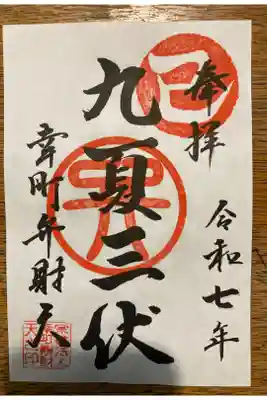 奉拝
令和七年
九夏三伏
幸町弁財天